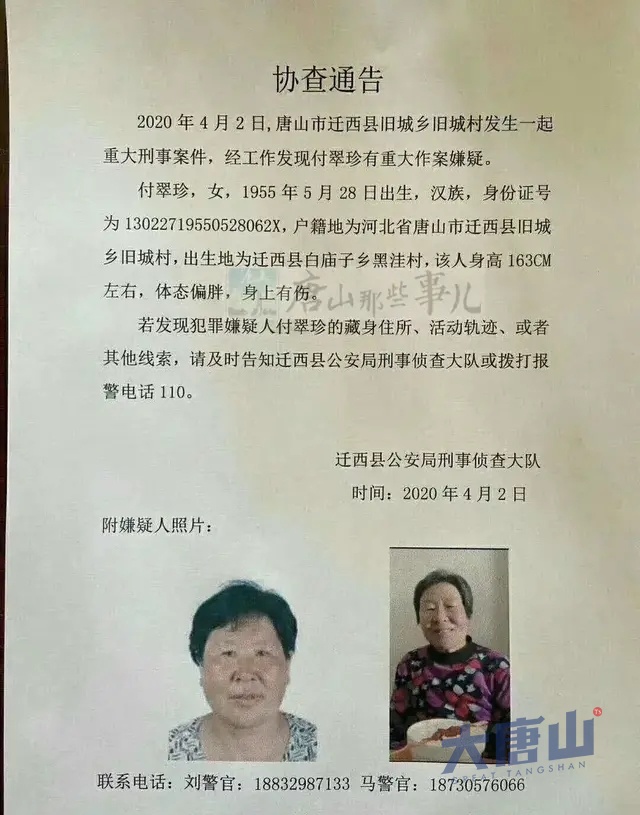 协查通告
2020年4月2日,唐山市迁西县旧城乡旧城村发生一起
重大刑事案件，经工作发现付翠珍有重大作案嫌疑。
付翠珍，女，1955年5月28日出生，汉族，身份证号
为13022719550528062X，户籍地为河北省唐山市迁西县旧城
乡旧城村，出生地为迁西县白庙子乡黑洼村，该人身高163CM
左右，体态偏胖，身上有伤。
唐山那些事儿
若发现犯罪嫌疑人付翠珍的藏身住所、活动轨迹、或者
其他线索，请及时告知迁西县公安局刑事侦查大队或拨打报
警电话110。
迁西县公安局刑事侦查大队
时间：2020年4月2日
附嫌疑人照片：
大唐山
GREAT TANGSHAN
联系电话：刘警官：18832987133 马警官：18730576066